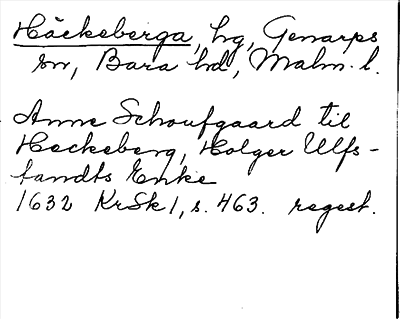 Häckeberga, hg, Genarps
sn, Bara hd, Malm. l.
Anne Schoufgaard til
Heckeberg, Holger Ulfs-
tandts Enke
1632 KrSk 1, s. 463. regest.